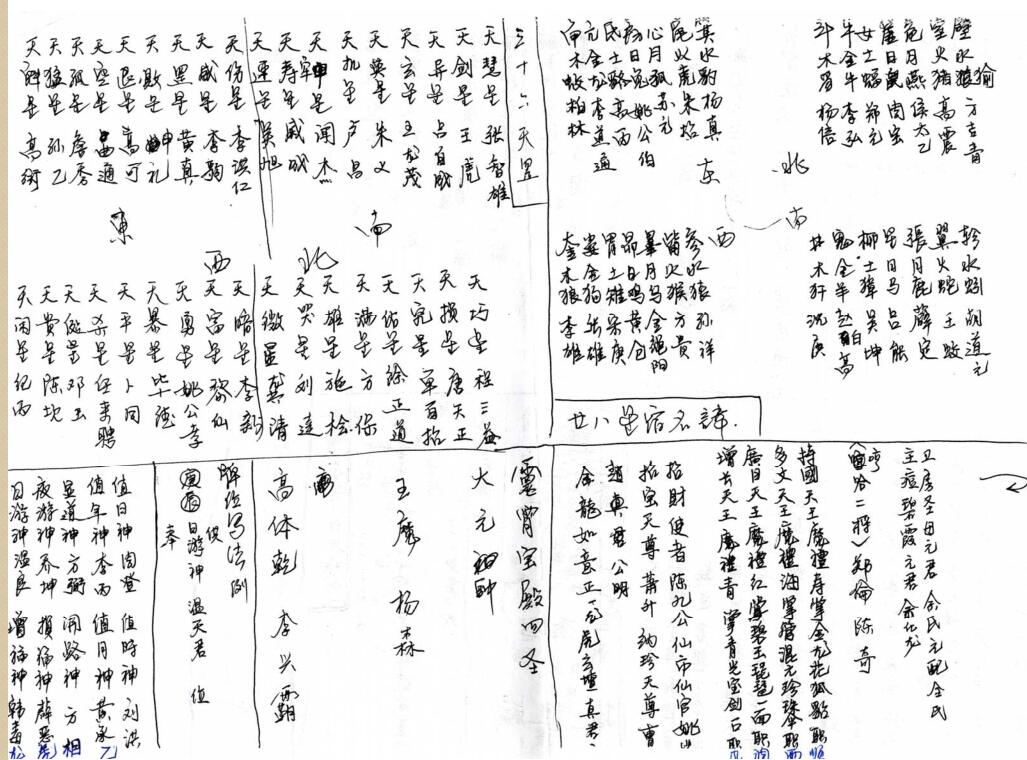 壁水㺄 方吉青
室火猪高震
危月燕侯太乙
虚日鼠周宝
女土蝠郑元
牛金牛李弘
斗木豸杨信
北
箕水豹杨真
尾火虎朱招
心月狐苏元
房日兔姚公伯
氐土貉高丙
亢金龙李道通
角木蛟柏林
东
南
轸水蚓胡道元
翼火蛇王蛟
張月鹿薛定
星日马吕能
柳土獐吴坤
鬼金羊赵白高
井木犴沈庚
西
参水猿孙祥
觜火猴方贵
畢月乌金绳阳
昴日鸡黄仓
胃土雉宋庚
娄金狗张雄
奎木狼李雄
廿八星宿名諱
三十六天罡
天慧星 张智雄
天剑星 王虎
天异星 吕自成
天玄星 王龙茂
天英星 朱义
天机星 卢昌
天牢星 闻杰
天寿星 戚成
天速星 吴旭
南
天伤星 李洪仁
天威星 李豹
天黑星 黄真
天败星 申礼
天退星 高可
天空星 昌通
天孤星 詹秀
天猛星 孙乙
天解星 高衍
東
西
北
天巧星 程三益
天损星 唐天正
天究星 单百招
天佑星 徐正道
天满星 方保
天雄星 施桧
天哭星 刘达
天微星 龚清
天暗星 李新
天富星 黎仙
天勇星 姚公孝
天暴星 毕德
天平星 卜同
天杀星 任来聘
天魁星 邓玉
天贵星 陈坎
天闲星 纪丙
卫房圣母元君余氏元配金氏
主痘碧霞元君余化龙
(哼哈二将)郑倫陈奇
持國天王魔禮寿掌金龙花狐貂职顺
多文天王魔禮海掌管混元珍珠伞职雨
廣目天王魔禮红掌碧玉琵琶一面职调
增长天王魔禮青掌青光宝剑一口职风
招財使者陈九公仙市仙官姚少
招宝天尊萧升纳珍天尊曹
趙真君公明
金龍如意正一龙虎玄壇真君
霊霄宝殿四圣
大元神帥
王魔 杨森
高体乾 李兴霸
解给写法例
使
日游神 温天君 值
奉
值日神周登 值時神刘洪
值年神李丙 值月神黄承乙
显道神方弼 开路神方相
夜游神乔坤 損福神薛恶虎
日游神温良 增福神韩毒龙